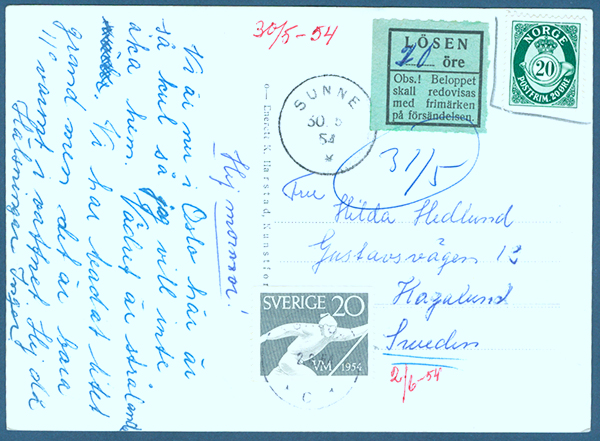 Hej mormor!
Vi är nu i Oslo här är
så kul så jag vill inte
åka hem. Vädret är strålande
Vi har badat litet
grand men det är bara
11° varmt i vattnet Hej då
Hälsningar Inger
30/5-54
LÖSEN
20 öre
Obs.! Beloppet
skall redovisas
med frimärken
på försändelsen.
NORGE
20
POSTFRIM. 20 ØRE
SUNNE
30 5
54
31/5
Eneret K. Harstad, Kunstfor
Fru Hilda Hedlund
Gustavsvägen 12
Hagalund
Sweden
2/6-54
SVERIGE 20
VM 1954
C